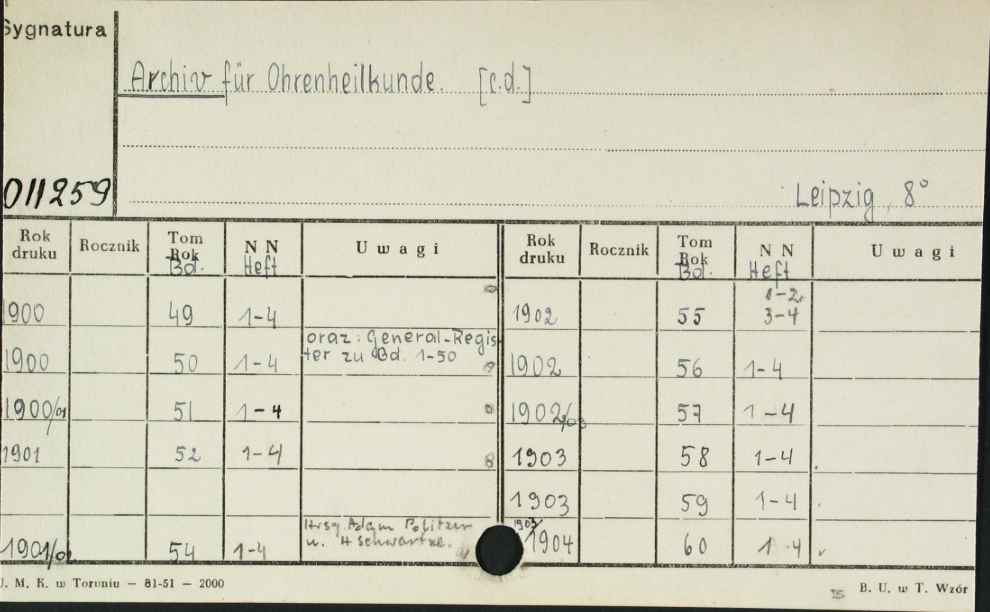 Sygnatura
Archiv für Ohrenheilkunde. [c.d.]
011259
Leipzig, 8°
Rok druku Rocznik Tom Rok Bd. N N Heft Uwagi Rok druku Rocznik Tom Rok Bd. N N Heft Uwagi
1900 49 1-4 1902 55 1-2, 3-4
1900 50 1-4 oraz: General-Regis
ter zu Bd. 1-50 1902 56 1-4
1900/01 51 1-4 1902/03 57 1-4
1901 52 1-4 1903 58 1-4
1903 59 1-4
1901/02 54 1-4 Hrsg. Adam Politzer
u. H Schwartze. 1903/1904 60 1-4
U. M. K. w Toruniu — 81-51 — 2000
B. U. w T. Wzór